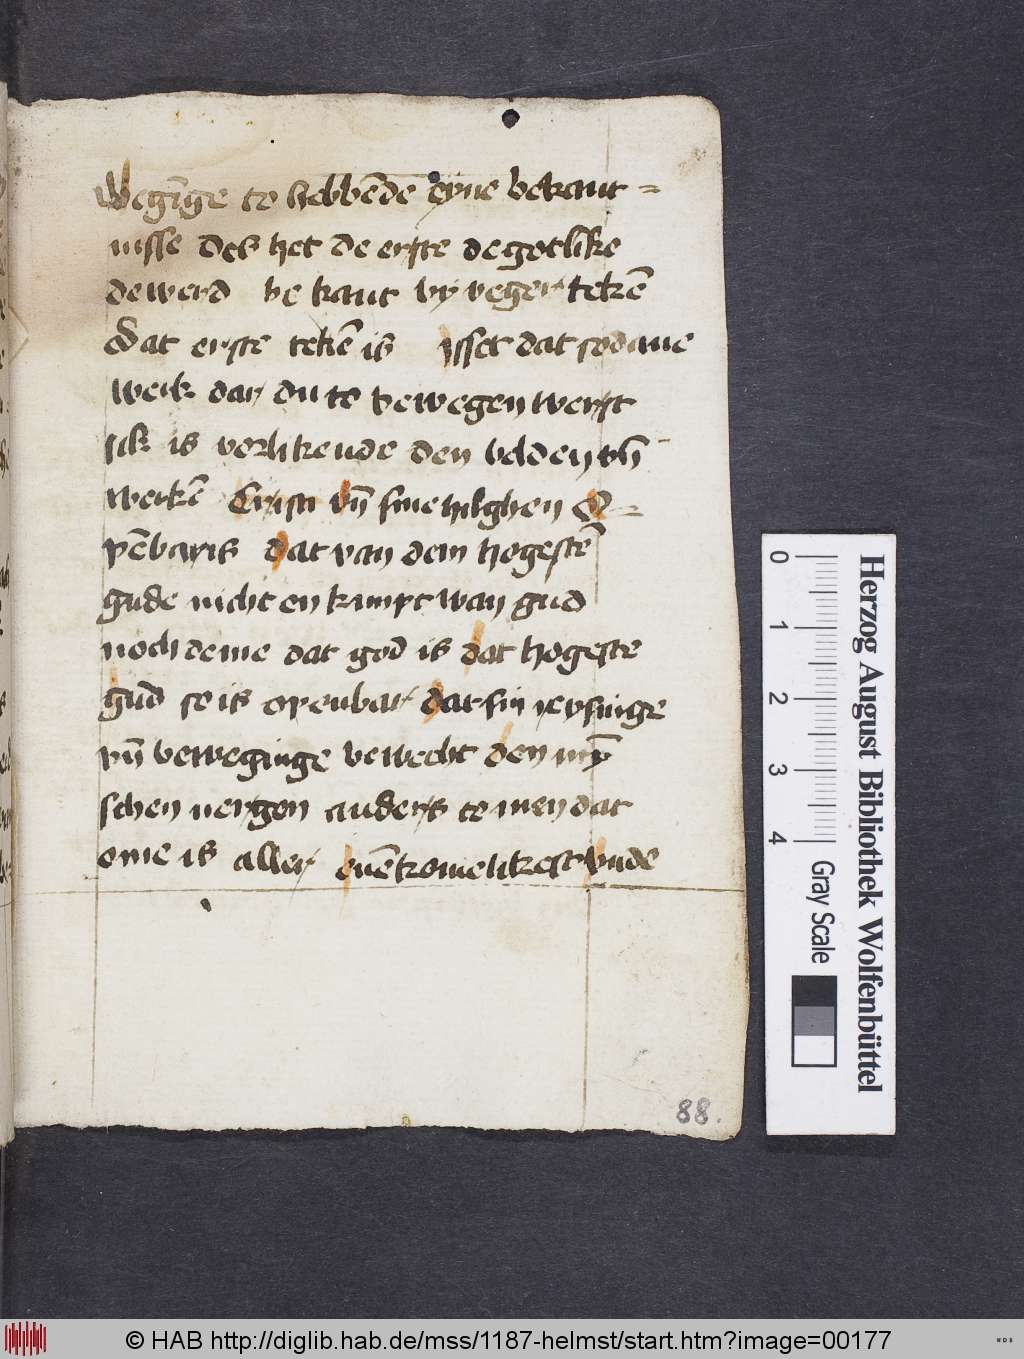 Wegīge to hebbēde eyne bekant=
nisse des het de erste de gotlike
de werd be kant by veger tekē
Dat erste tekē is Isset dat sodane
werk dar du to bewegen werst
sik is vorlikende den belden vn̄
werkē Cristi vn̄ sine hilghen O=
pēbaris dat van dem hogestē
gude nicht en kumpt wan gud
noch deme dat god is dat hogeste
gud so is openbar dat sin reysinge
vn̄ beweginge bewecht den mȳ
schen nergen anders to men dat
ome is aller euēkomelikest vnde
88.
Herzog August Bibliothek Wolfenbüttel
0 1 2 3 4 Gray Scale
© HAB http://diglib.hab.de/mss/1187-helmst/start.htm?image=00177
WDB